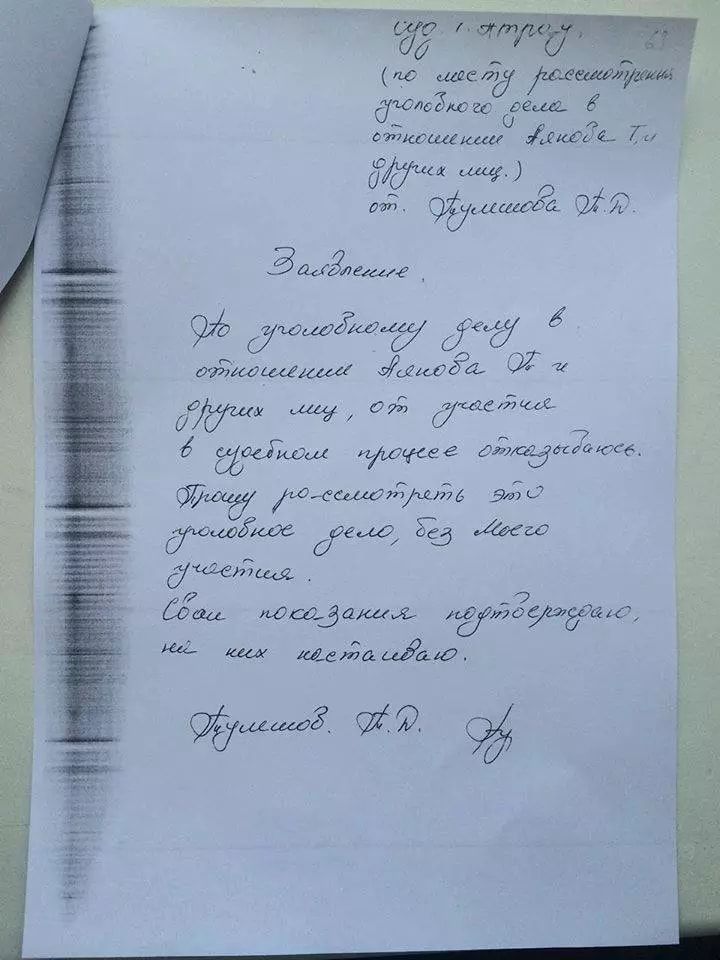 суд г. Атырау. 63
(по месту рассмотрения
уголовного дела в
отношении Аянова Т. и
других лиц.)
от. Кулешова К.Д.
Заявление.
По уголовному делу в
отношении Аянова Т. и
других лиц, от участия
в судебном процессе отказываюсь.
Прошу ра-ссмотреть это
уголовное дело, без моего
участия.
Свои показания подтверждаю,
на них настаиваю.
Кулешов. К.Д.